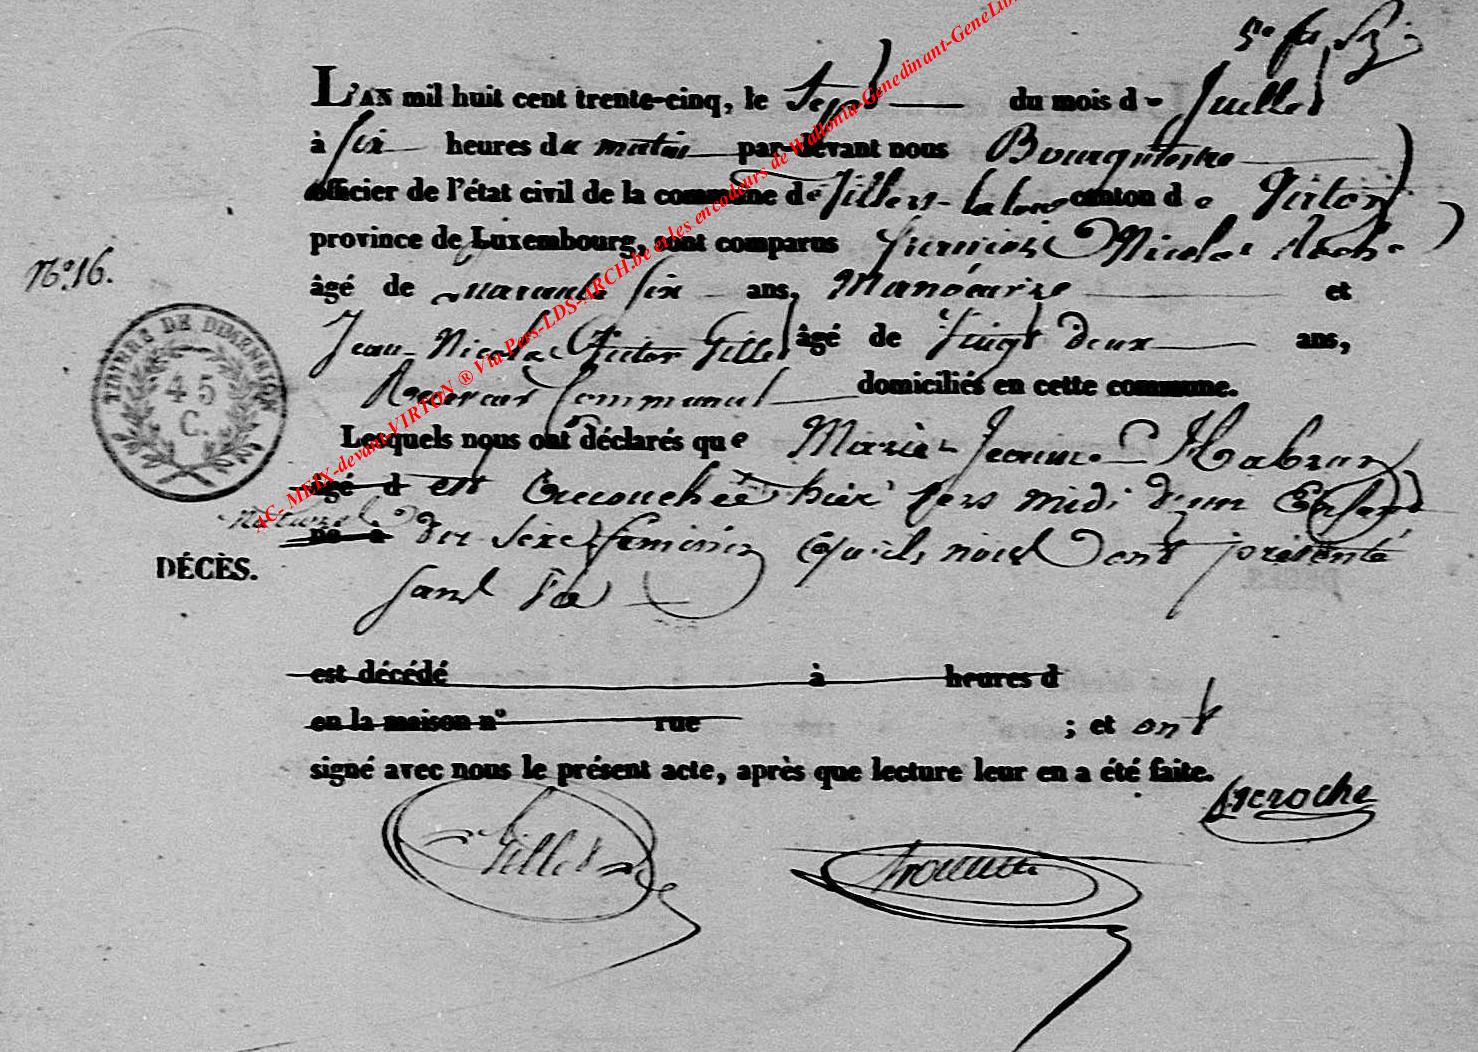 L'AN mil huit cent trente-cinq, le Sept du mois de Juillet
à Six heures du matin par-devant nous Bourgmestre
officier de l'état civil de la commune de Villers-laloue canton de Virton
province de Luxembourg, sont comparus François Nicolas
N.o 16.
âgé de quarante Six ans, Manœuvre et
Jean Nicolas Victor Gilles âgé de Vingt deux ans,
Receveur Communal domiciliés en cette commune.
TIMBRE DE DIMENSION
45
C.
Lesquels nous ont déclarés que Marie Jeanne Habran
âgé d est accouchée hier vers midi d'un Enfant
naturel
né à du Sexe feminin qu'ils nous ont présenté
DÉCÈS.
sans vie
est décédé à heures d
en la maison n° rue ; et ont
signé avec nous le présent acte, après que lecture leur en a été faite.
Gilles
AC- MEIX-devant-VIRTON ® Via Pers-LDS-ARCH.be et les encodeurs de Wallonia-Genedinant-GeneLib